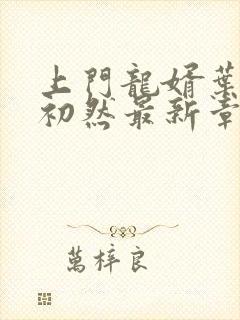 上門龍婿葉
初然最新章
萬梓良